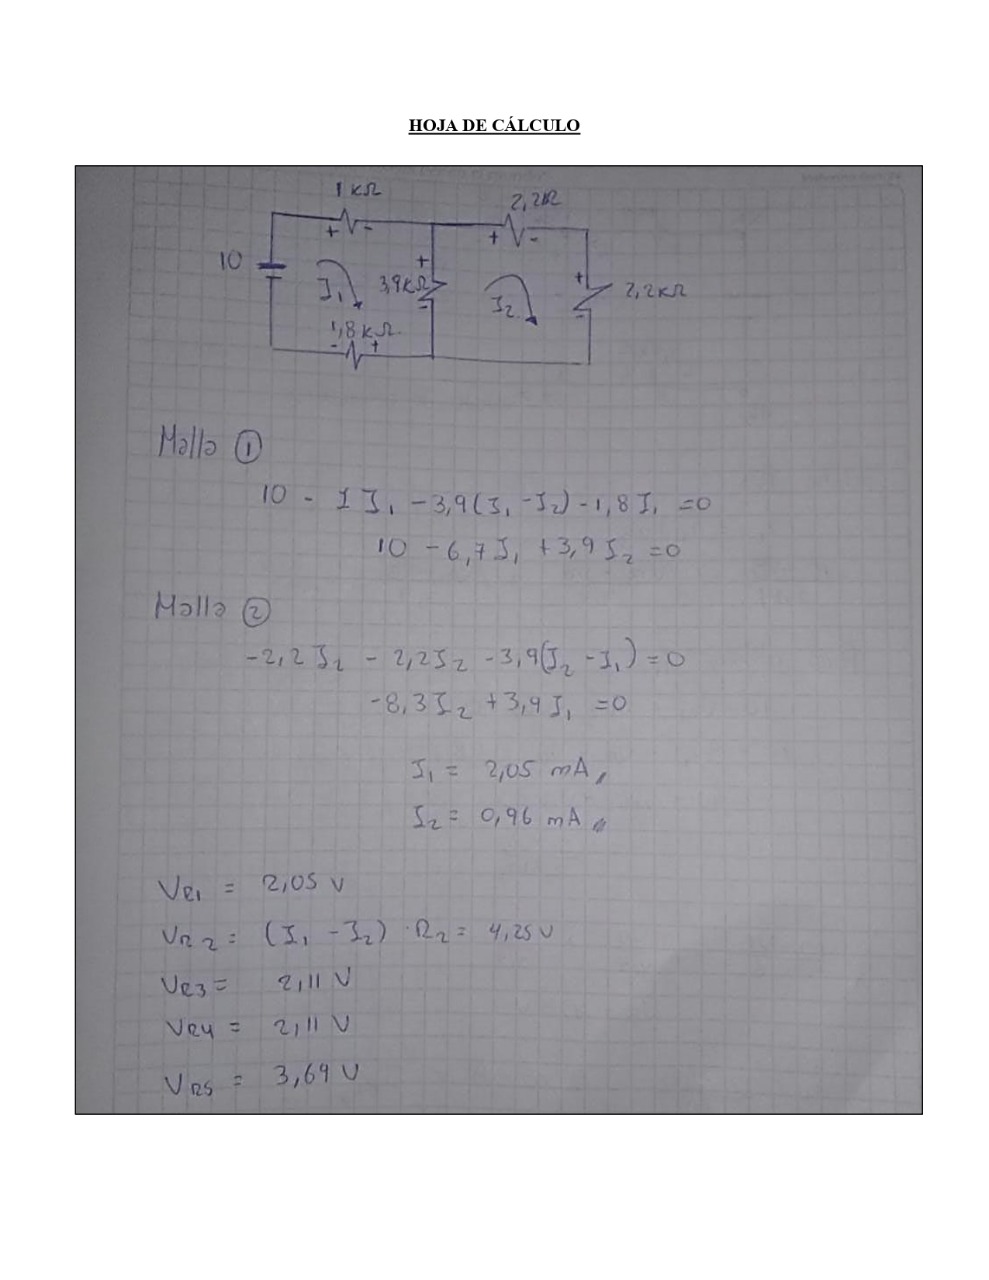 HOJA DE CÁLCULO
1 KΩ
2,2Ω
10
I₁
3,9KΩ
I₂
2,2KΩ
1,8 KΩ
+ -
+ -
+
-
+
-
- +
Malla ①
10 - 1 I₁ - 3,9(I₁ - I₂) - 1,8 I₁ = 0
10 - 6,7 I₁ + 3,9 I₂ = 0
Malla ②
-2,2 I₂ - 2,2 I₂ - 3,9(I₂ - I₁) = 0
-8,3 I₂ + 3,9 I₁ = 0
I₁ = 2,05 mA
I₂ = 0,96 mA
VR1 = 2,05 V
VR2 = (I₁ - I₂) · R₂ = 4,25 V
VR3 = 2,11 V
VR4 = 2,11 V
VR5 = 3,69 V